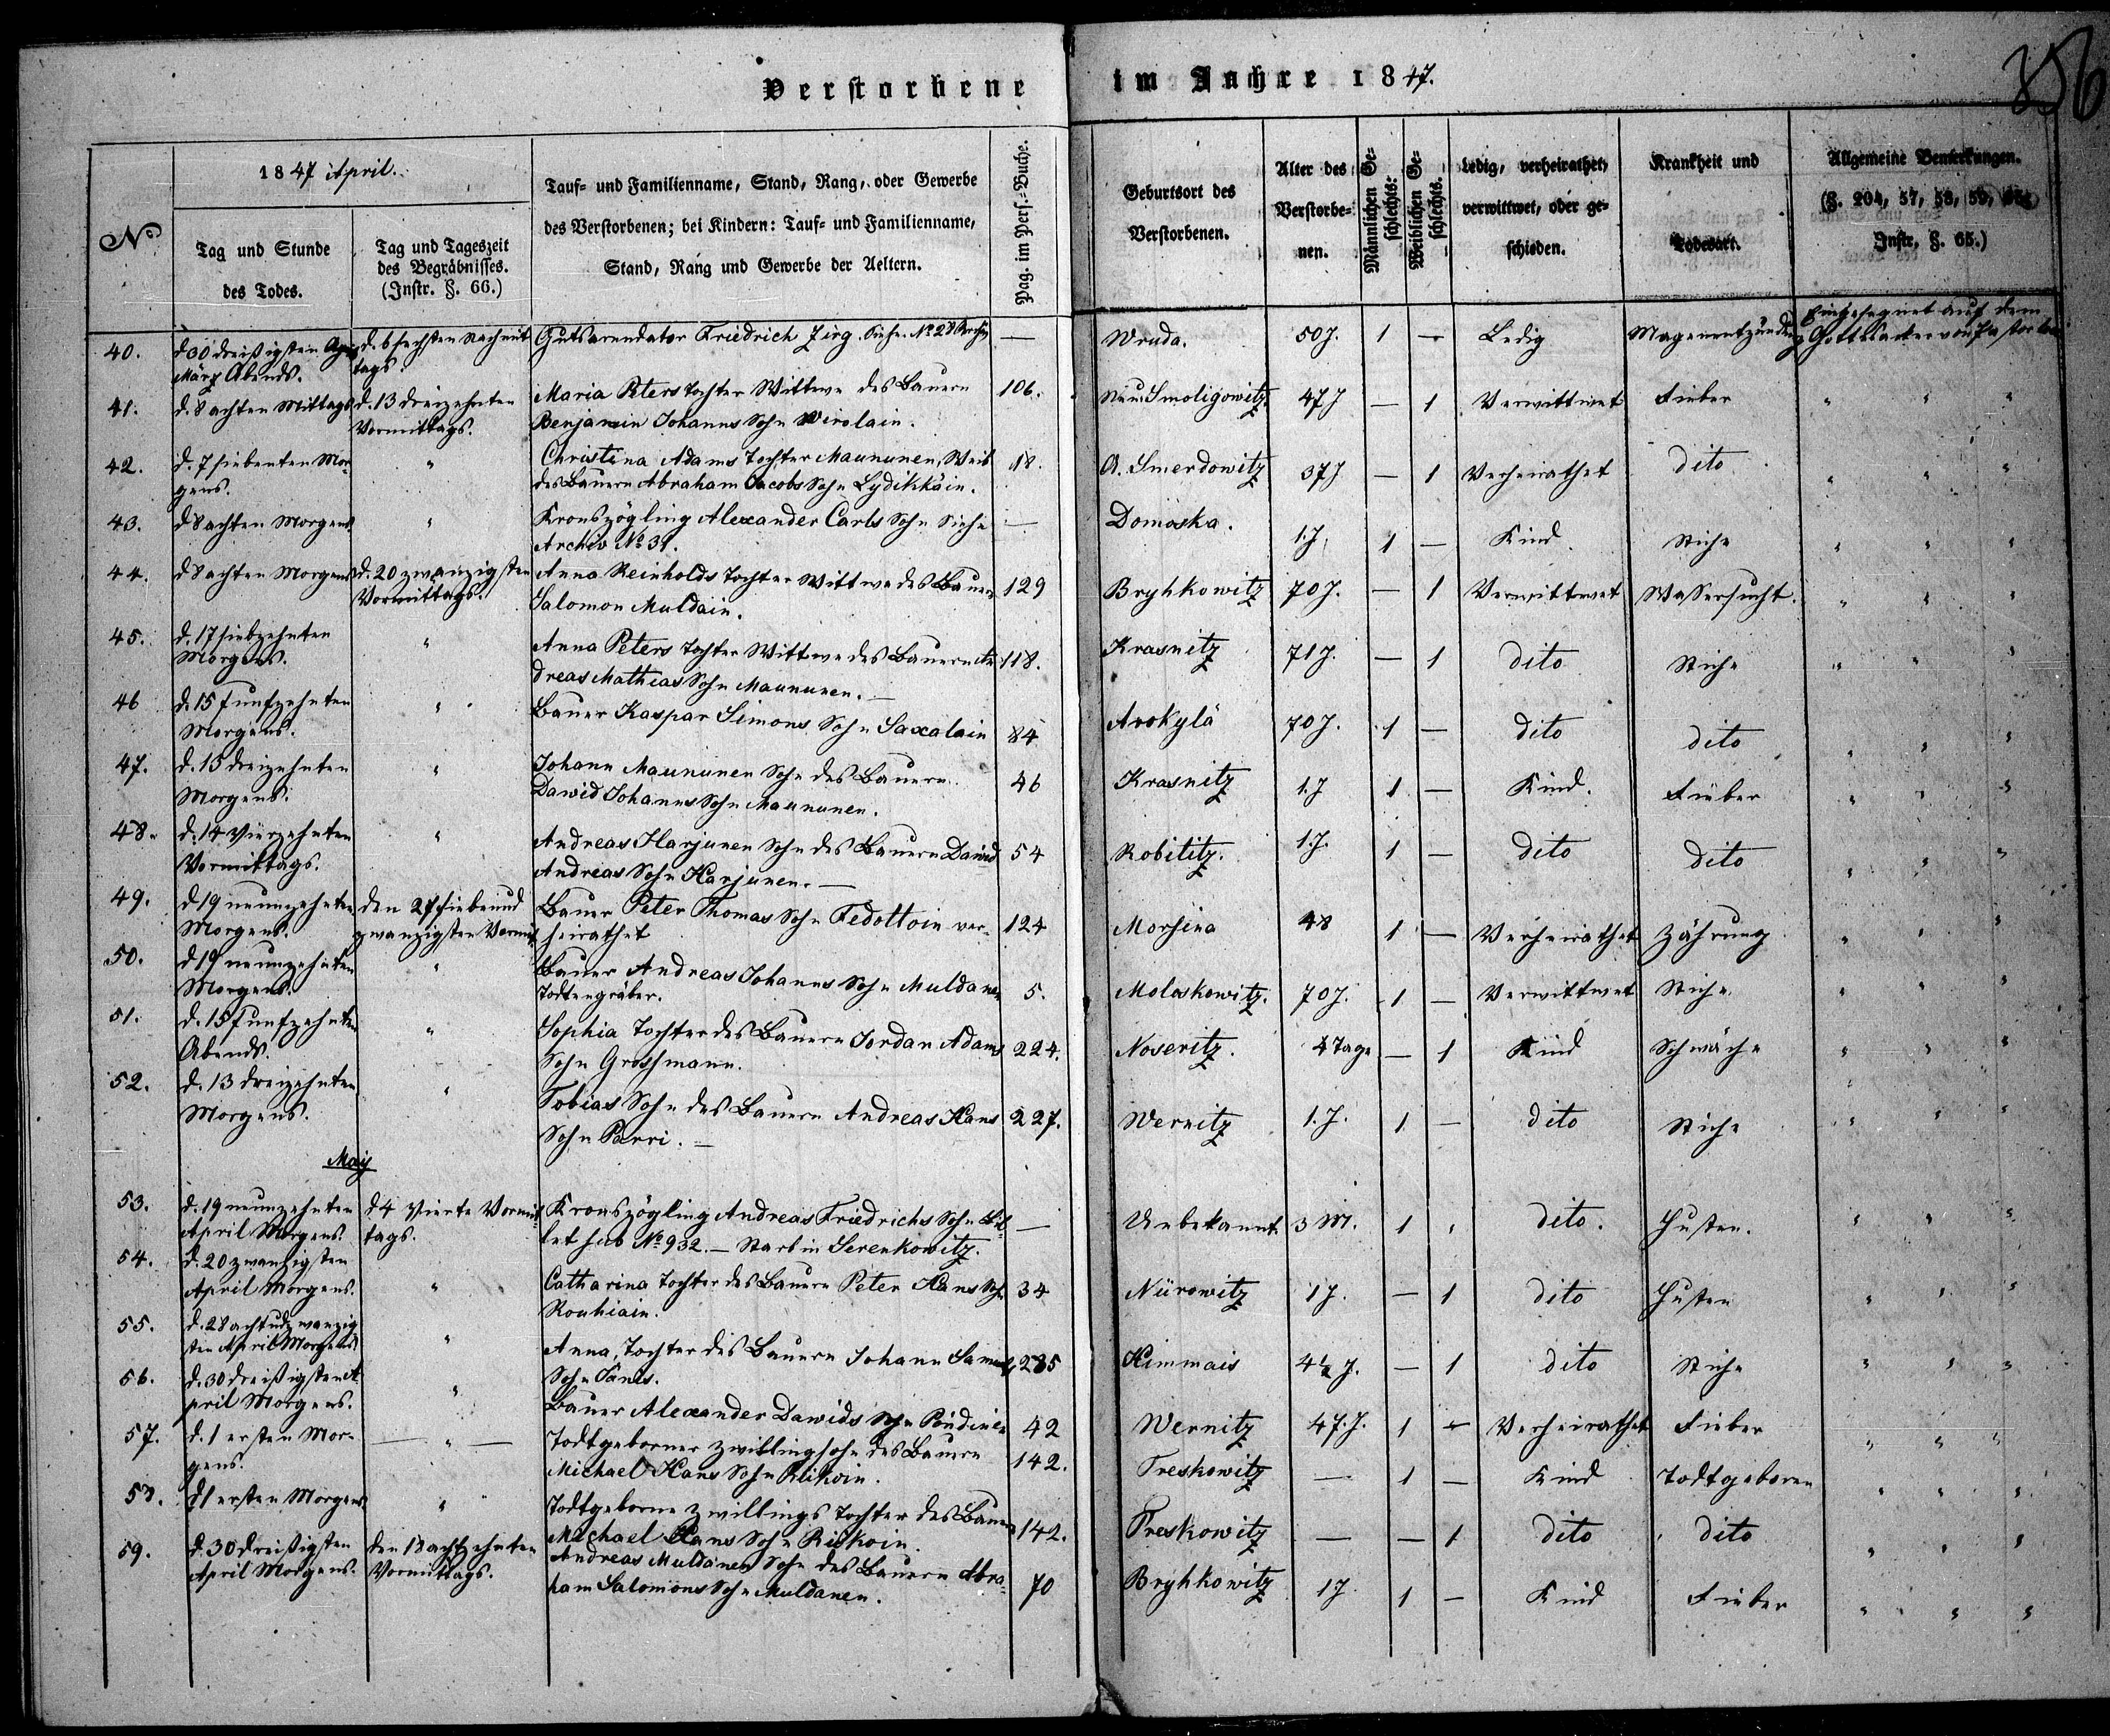 Verstorbene im Jahre 1847.
1847 April.
No
Tag und Stunde des Todes.
Tag und Tageszeit des Begräbnisses. (Instr. §. 66.)
Tauf- und Familienname, Stand, Rang, oder Gewerbe
des Verstorbenen; bei Kindern: Tauf- und Familienname,
Stand, Rang und Gewerbe der Aeltern.
Pag. im Pers.-Buche.
Geburtsort des Verstorbenen.
Alter des Verstorbenen.
Männlichen Geschlechts.
Weiblichen Geschlechts.
Ledig, verheirathet, verwittwet, oder geschieden.
Krankheit und Todesart.
Allgemeine Bemerkungen.
(§. 204, 57, 58, 59,
Instr. §. 65.)
40. d 30 dreißigsten d. 6 sechsten Nachmit Gutsarendator Friedrich Jirg. Siehe No 28 Archiv — Wruda. 50 J. 1 — Ledig Magenentzündung Eingesegnet auf dem
März Abends. tags. Gottesacker von Pastor
41. d. 8 achten Mittags d. 13 dreizehnten Maria Peters Tochter Wittwe des Bauern 106. Neu Smoligowitz. 47 J — 1 Verwittwet Fieber " " "
Vormittags. Benjamin Johanns Sohn Wirolain.
42. d. 7 siebenten Mor- " Christina Adams Tochter Maununen, Weib 18. A. Smerdowitz 37 J — 1 Verheirathet dito " " "
gens. des Bauern Abraham Jacobs Sohn Lydikkäin.
43. d 8 achten Morgens " Kronszögling Alexander Carls Sohn Siehe — Domaska. 1. J. 1 — Kind Stiche " " "
Archiv No 31.
44. d 8 achten Morgens d. 20 zwanzigsten Anna Reinholds Tochter Wittwe des Bauern 129 Bryhkowitz 70 J. — 1 Verwittwet Wassersucht. " " "
Vormittags. Salomon Muldain.
45. d. 17 siebzehnten " Anna Peters Tochter Wittwe des Bauern An 118. Krasnitz 71 J. — 1 dito Stiche " " "
Morgens. dreas Mathias Sohn Maununen. —
46 d. 15 funfzehnten " Bauer Kaspar Simons Sohn Saxalain 84 Arokylä 70 J. 1 — dito dito " " "
Morgens.
47. d. 13 dreizehnten " Johann Maununen Sohn des Bauern 46 Krasnitz 1. J 1 — Kind. Fieber " " "
Morgens. Dawid Johanns Sohn Maununen.
48. d. 14 vierzehnten " Andreas Harjunen Sohn des Bauern Dawid 54 Robititz. 1. J. 1 — dito dito " " "
Vormittags. Andreas Sohn Harjunen. —
49. d 19 neunzehnten den 27 siebenund Bauer Peter Thomas Sohn Fedottoin ver- 124 Morsina 48 1 — Verheirathet Zährung " " "
Morgens. zwanzigsten Vormit heirathet
50. d 19 neunzehnten " Bauer Andreas Johanns Sohn Muldanen 5. Moloskowitz. 70 J. 1 — Verwittwet Stiche " " "
Morgens. Todtengräber.
51. d. 15 funfzehnten " Sophia Tochter des Bauern Jordan Adams 224. Noseritz. 4 Tage — 1 Kind Schwäche " " "
Abends. Sohn Groshmann.
52. d. 13 dreizehnten " Tobias Sohn des Bauern Andreas Hans 227. Wernitz 1. J. 1 — dito Stiche " " "
Morgens. Sohn Parri. —
May
53. d. 19 neunzehnten d 4 vierte Vormit Kronszögling Andreas Friedrichs Sohn Bil — Unbekannt 3 M. 1 " dito. Husten. " " "
April Morgens. tags. let sub No 932. — Starb in Serenkowitz.
54. d. 20 zwanzigsten " Catharina Tochter des Bauern Peter Hans Sohn 34 Nürowitz 1 J. — 1 dito Husten " " "
April Morgens. Rouhiain.
55. d. 28 achtundzwanzig " Anna, Tochter des Bauern Johann Samuels 285 Kimmais 4½ J. — 1 dito Stiche " " "
sten April Morgens Sohn Tanes.
56. d. 30 dreißigsten A " Bauer Alexander Dawids Sohn 42 Wernitz 47. J. 1 — Verheirathet Fieber " " "
pril Morgens.
57. d. 1 ersten Mor- — " — Todtgeborner Zwillingssohn des Bauern 142. Treskowitz — 1 — Kind Todtgeboren " " "
gens. Michael Hans Sohn Rikoin.
58. d 1 ersten Morgens " Todtgeborne Zwillings Tochter des Bauern 142. Treskowitz — — 1 dito dito " " "
Michael Hans Sohn Rikoin.
59. d. 30 dreißigsten den 18 achtzehnten Andreas Muldanen Sohn des Bauern Abra- 70 Bryhkowitz 1 J 1 — Kind Fieber " " "
April Morgens. Vormittags. ham Salomons Sohn Muldanen.